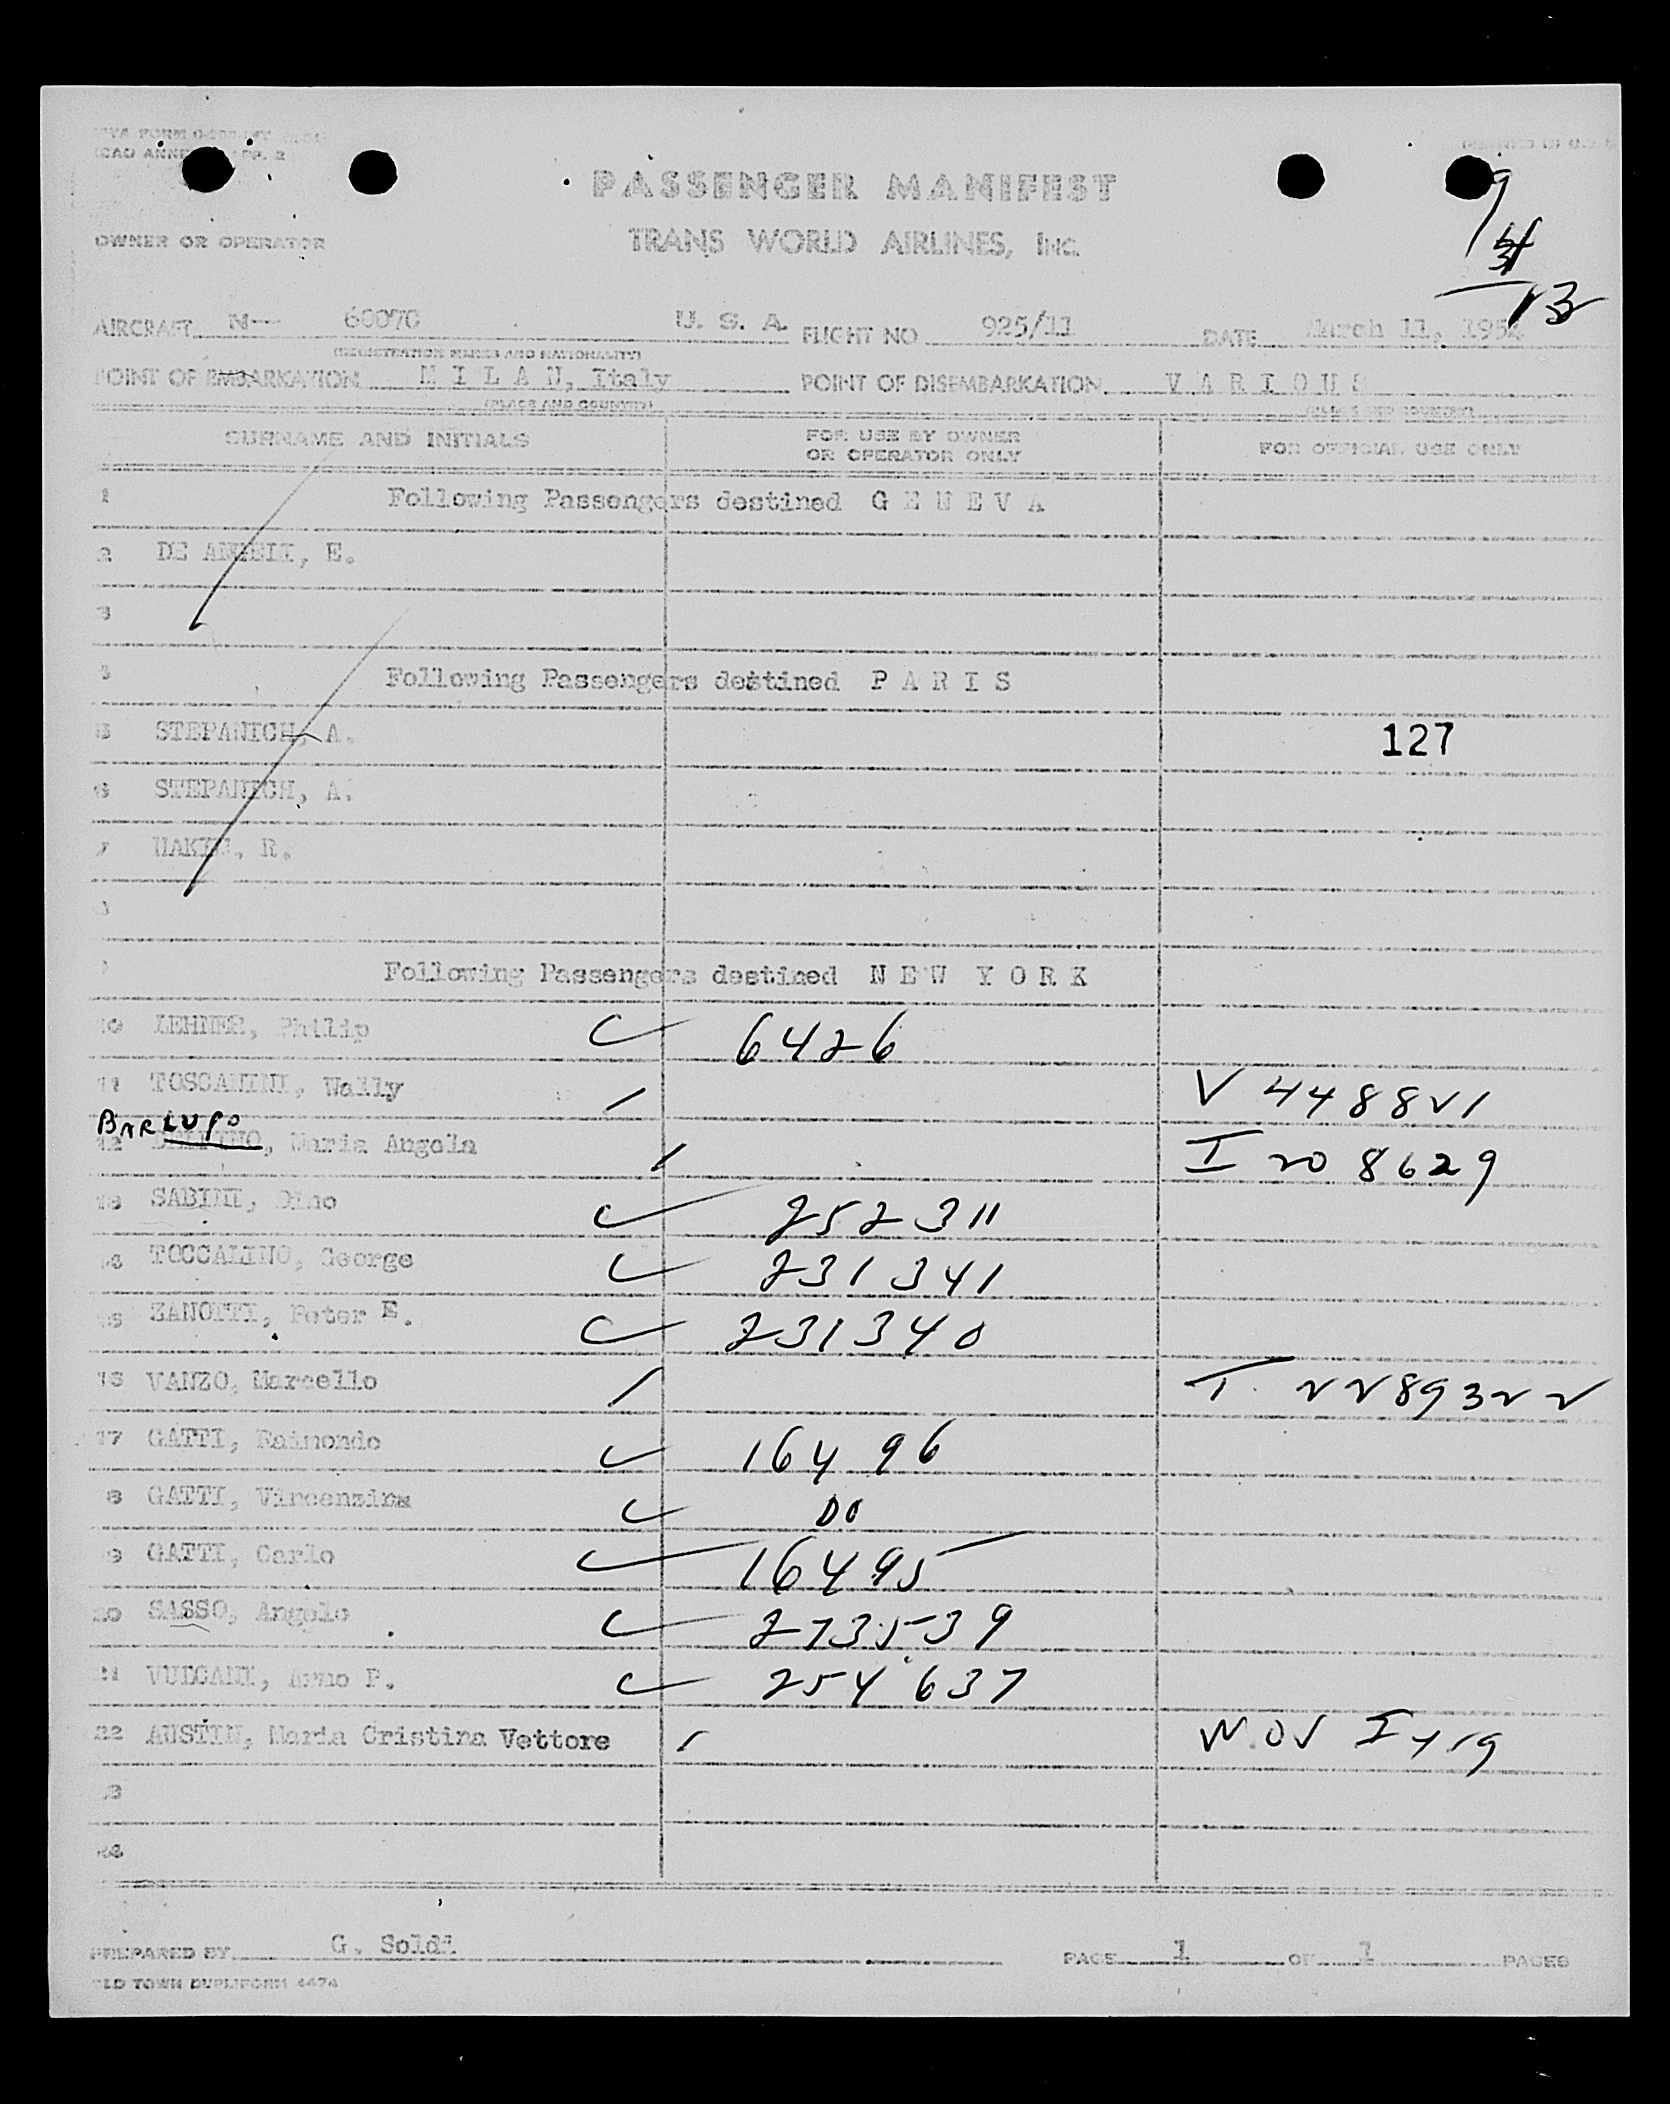 PASSENGER MANIFEST
OWNER OR OPERATOR
TRANS WORLD AIRLINES, INC.
9
13
AIRCRAFT N— U. S. A. FLIGHT NO 925/11 DATE March 11,
(REGISTRATION MARKS AND NATIONALITY)
POINT OF EMBARKATION M I L A N, Italy POINT OF DISEMBARKATION V A R I O U S
(PLACE AND COUNTRY) (PLACE AND COUNTRY)
SURNAME AND INITIALS FOR USE BY OWNER OR OPERATOR ONLY FOR OFFICIAL USE ONLY
1 Following Passengers destined G E N E V A
2 DE ANGELI, E.
3
Following Passengers destined P A R I S
STEPANICH, A. 127
6 STEPANICH, A.
7 R.
Following Passengers destined N E W Y O R K
10 LEHNER, Philip 6426
11 TOSCANINI, Wally V 448821
12 Maria Angela I 208629
13 SABINI, Dino 252311
TOCCALINO, George 231341
15 ZANOTTI, Peter E. 231340
16 VANZO, Marcello I 2289322
17 GATTI, Raimondo 16496
8 GATTI, DO
9 GATTI, Carlo 16495
20 SASSO, Angelo 273539
VULCANI, P. 254637
22 AUSTIN, Maria Cristina Vettore
PREPARED BY G. Soldi PAGE 1 OF 1 PAGES
OLD TOWN DUPLIFORM 4474